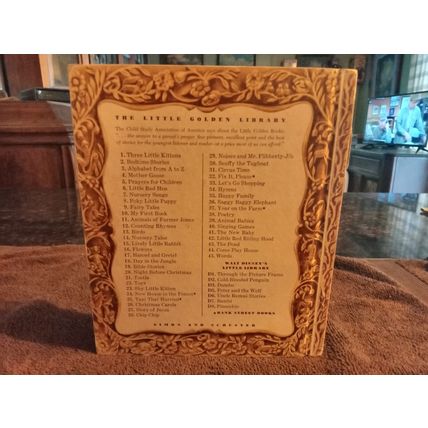 THE LITTLE GOLDEN LIBRARY
The Child Study Association of America says about the Little Golden Books:
". . . the answer to a parent's prayer. fine pictures, excellent print and the best
of stories for the youngest listener and reader—at a price most of us can afford."
1. Three Little Kittens
2. Bedtime Stories
3. Alphabet from A to Z
4. Mother Goose
5. Prayers for Children
6. Little Red Hen
7. Nursery Songs
8. Poky Little Puppy
9. Fairy Tales
10. My First Book
11. Animals of Farmer Jones
12. Counting Rhymes
13. Birds
14. Nursery Tales
15. Lively Little Rabbit
16. Flowers
17. Hansel and Gretel
18. Day in the Jungle
19. Bible Stories
20. Night Before Christmas
21. Tootle
22. Toys
23. Shy Little Kitten
24. New House in the Forest
25. Taxi That Hurried
26. Christmas Carols
27. Story of Jesus
28. Chip Chip
29. Noises and Mr. Flibberty-Jib
30. Scuffy the Tugboat
31. Circus Time
32. Fix It, Please
33. Let's Go Shopping
34. Hymns
35. Happy Family
36. Saggy Baggy Elephant
37. Year on the Farm
38. Poetry
39. Animal Babies
40. Singing Games
41. The New Baby
42. Little Red Riding Hood
43. The Pond
44. Come Play House
45. Words
WALT DISNEY'S
LITTLE LIBRARY
D1. Through the Picture Frame
D2. Cold-Blooded Penguin
D3. Dumbo
D5. Peter and the Wolf
D6. Uncle Remus Stories
D7. Bambi
D8. Pinocchio
BANK STREET BOOKS
SIMON AND SCHUSTER